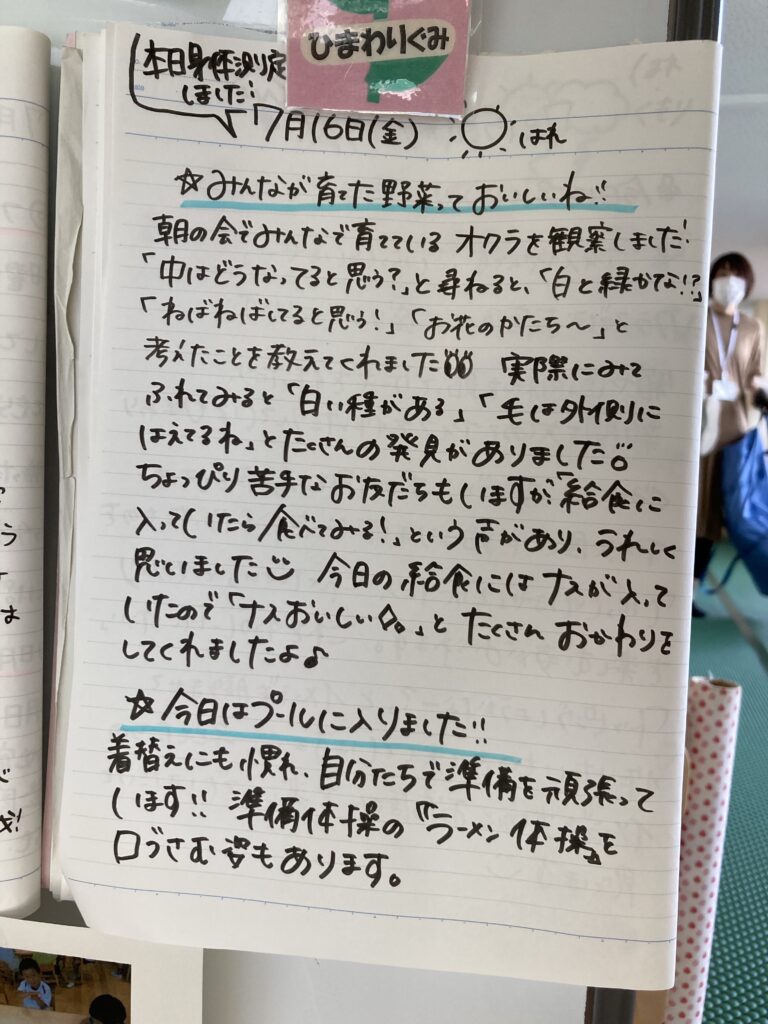 ひまわりぐみ
本日身体測定
しました!
7月16日(金) はれ
☆みんなが育てた野菜っておいしいね!!
朝の会でみんなで育てている オクラを観察しました!
「中はどうなってると思う?」と尋ねると、「白と緑かな!?」
「ねばねばしてると思う!」「お花のかたち〜」と
考えたことを教えてくれました 実際にみて
ふれてみると「白い種がある」「毛は外側に
はえてるね」とたくさんの発見がありました
ちょっぴり苦手なお友だちもいますが「給食に
入っていたら食べてみる!」という声があり、うれしく
思いました 今日の給食にはナスが入って
いたので「ナスおいしい。」とたくさんおかわりを
してくれましたよ♪
☆今日はプールに入りました!!
着替えにも慣れ、自分たちで準備を頑張って
います!! 準備体操の『ラーメン体操』を
口ずさむ姿もあります。